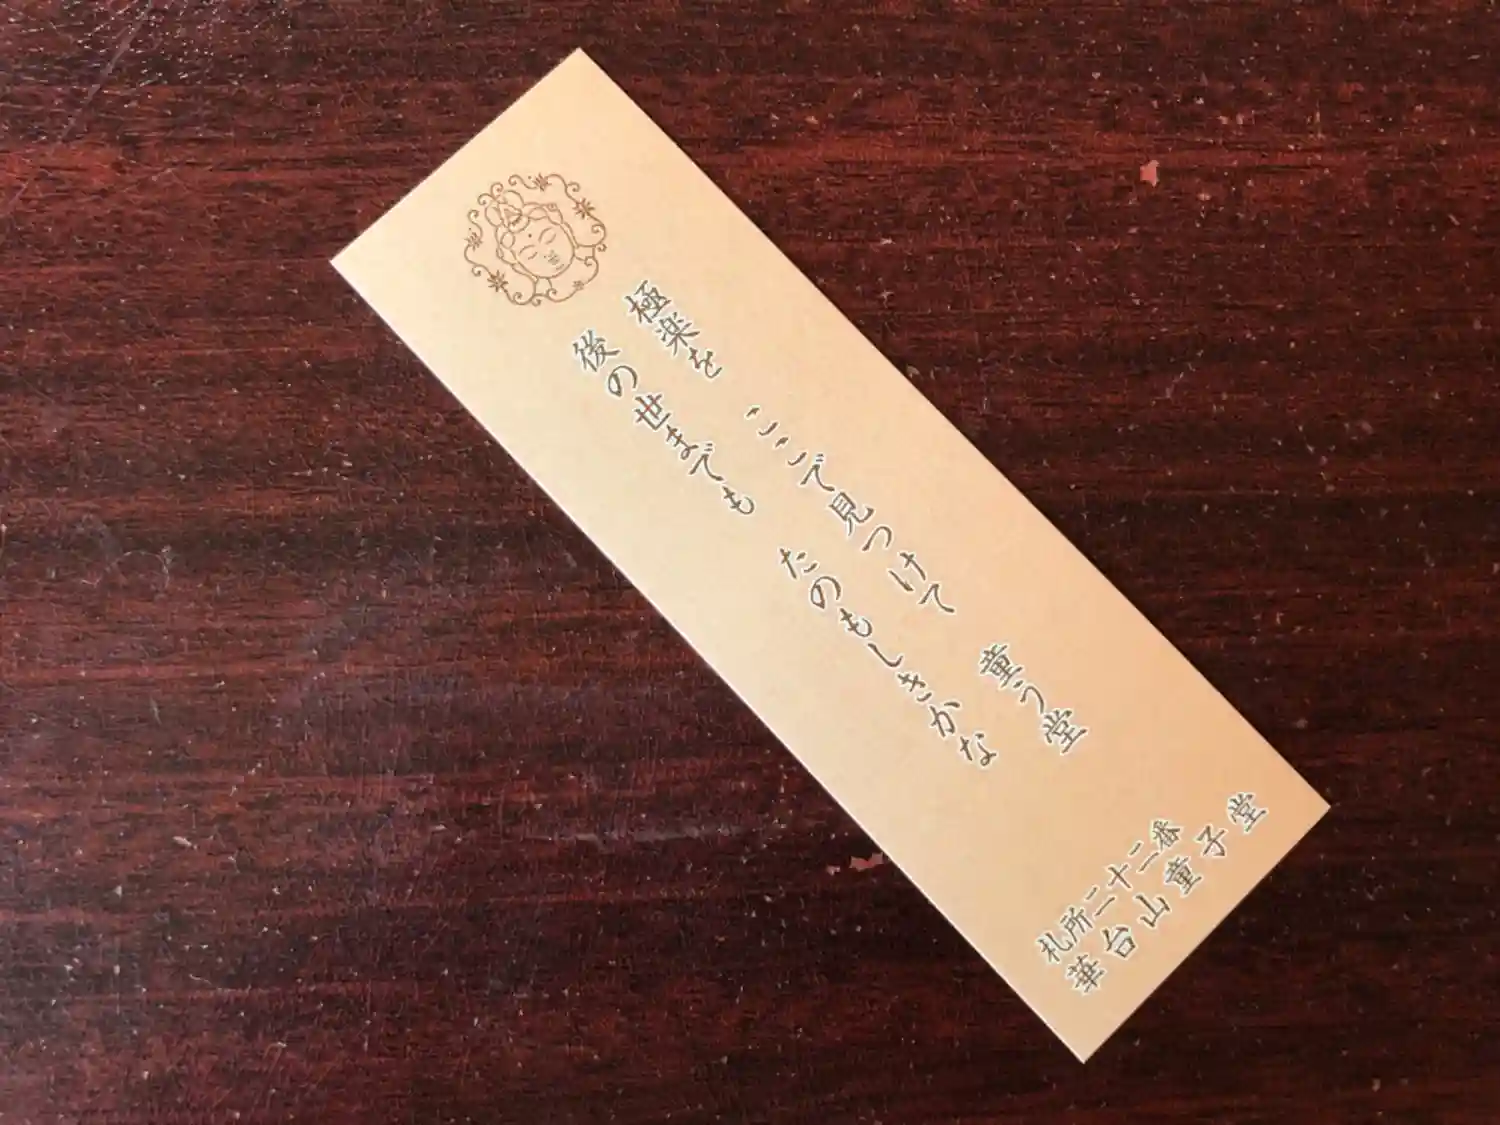 極楽を ここで見つけて 童う堂
後の世までも たのもしきかな
札所二十二番
華台山童子堂